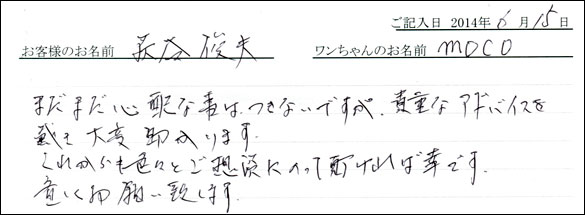 ご記入日 2014年 6月 15日
お客様のお名前 萩谷 俊夫 ワンちゃんのお名前 MOCO
まだまだ心配な事は、つきないですが、貴重なアドバイスを
戴き 大変 助かります。
これからも色々とご相談にのって頂ければ幸です。
宜しくお願い致します。